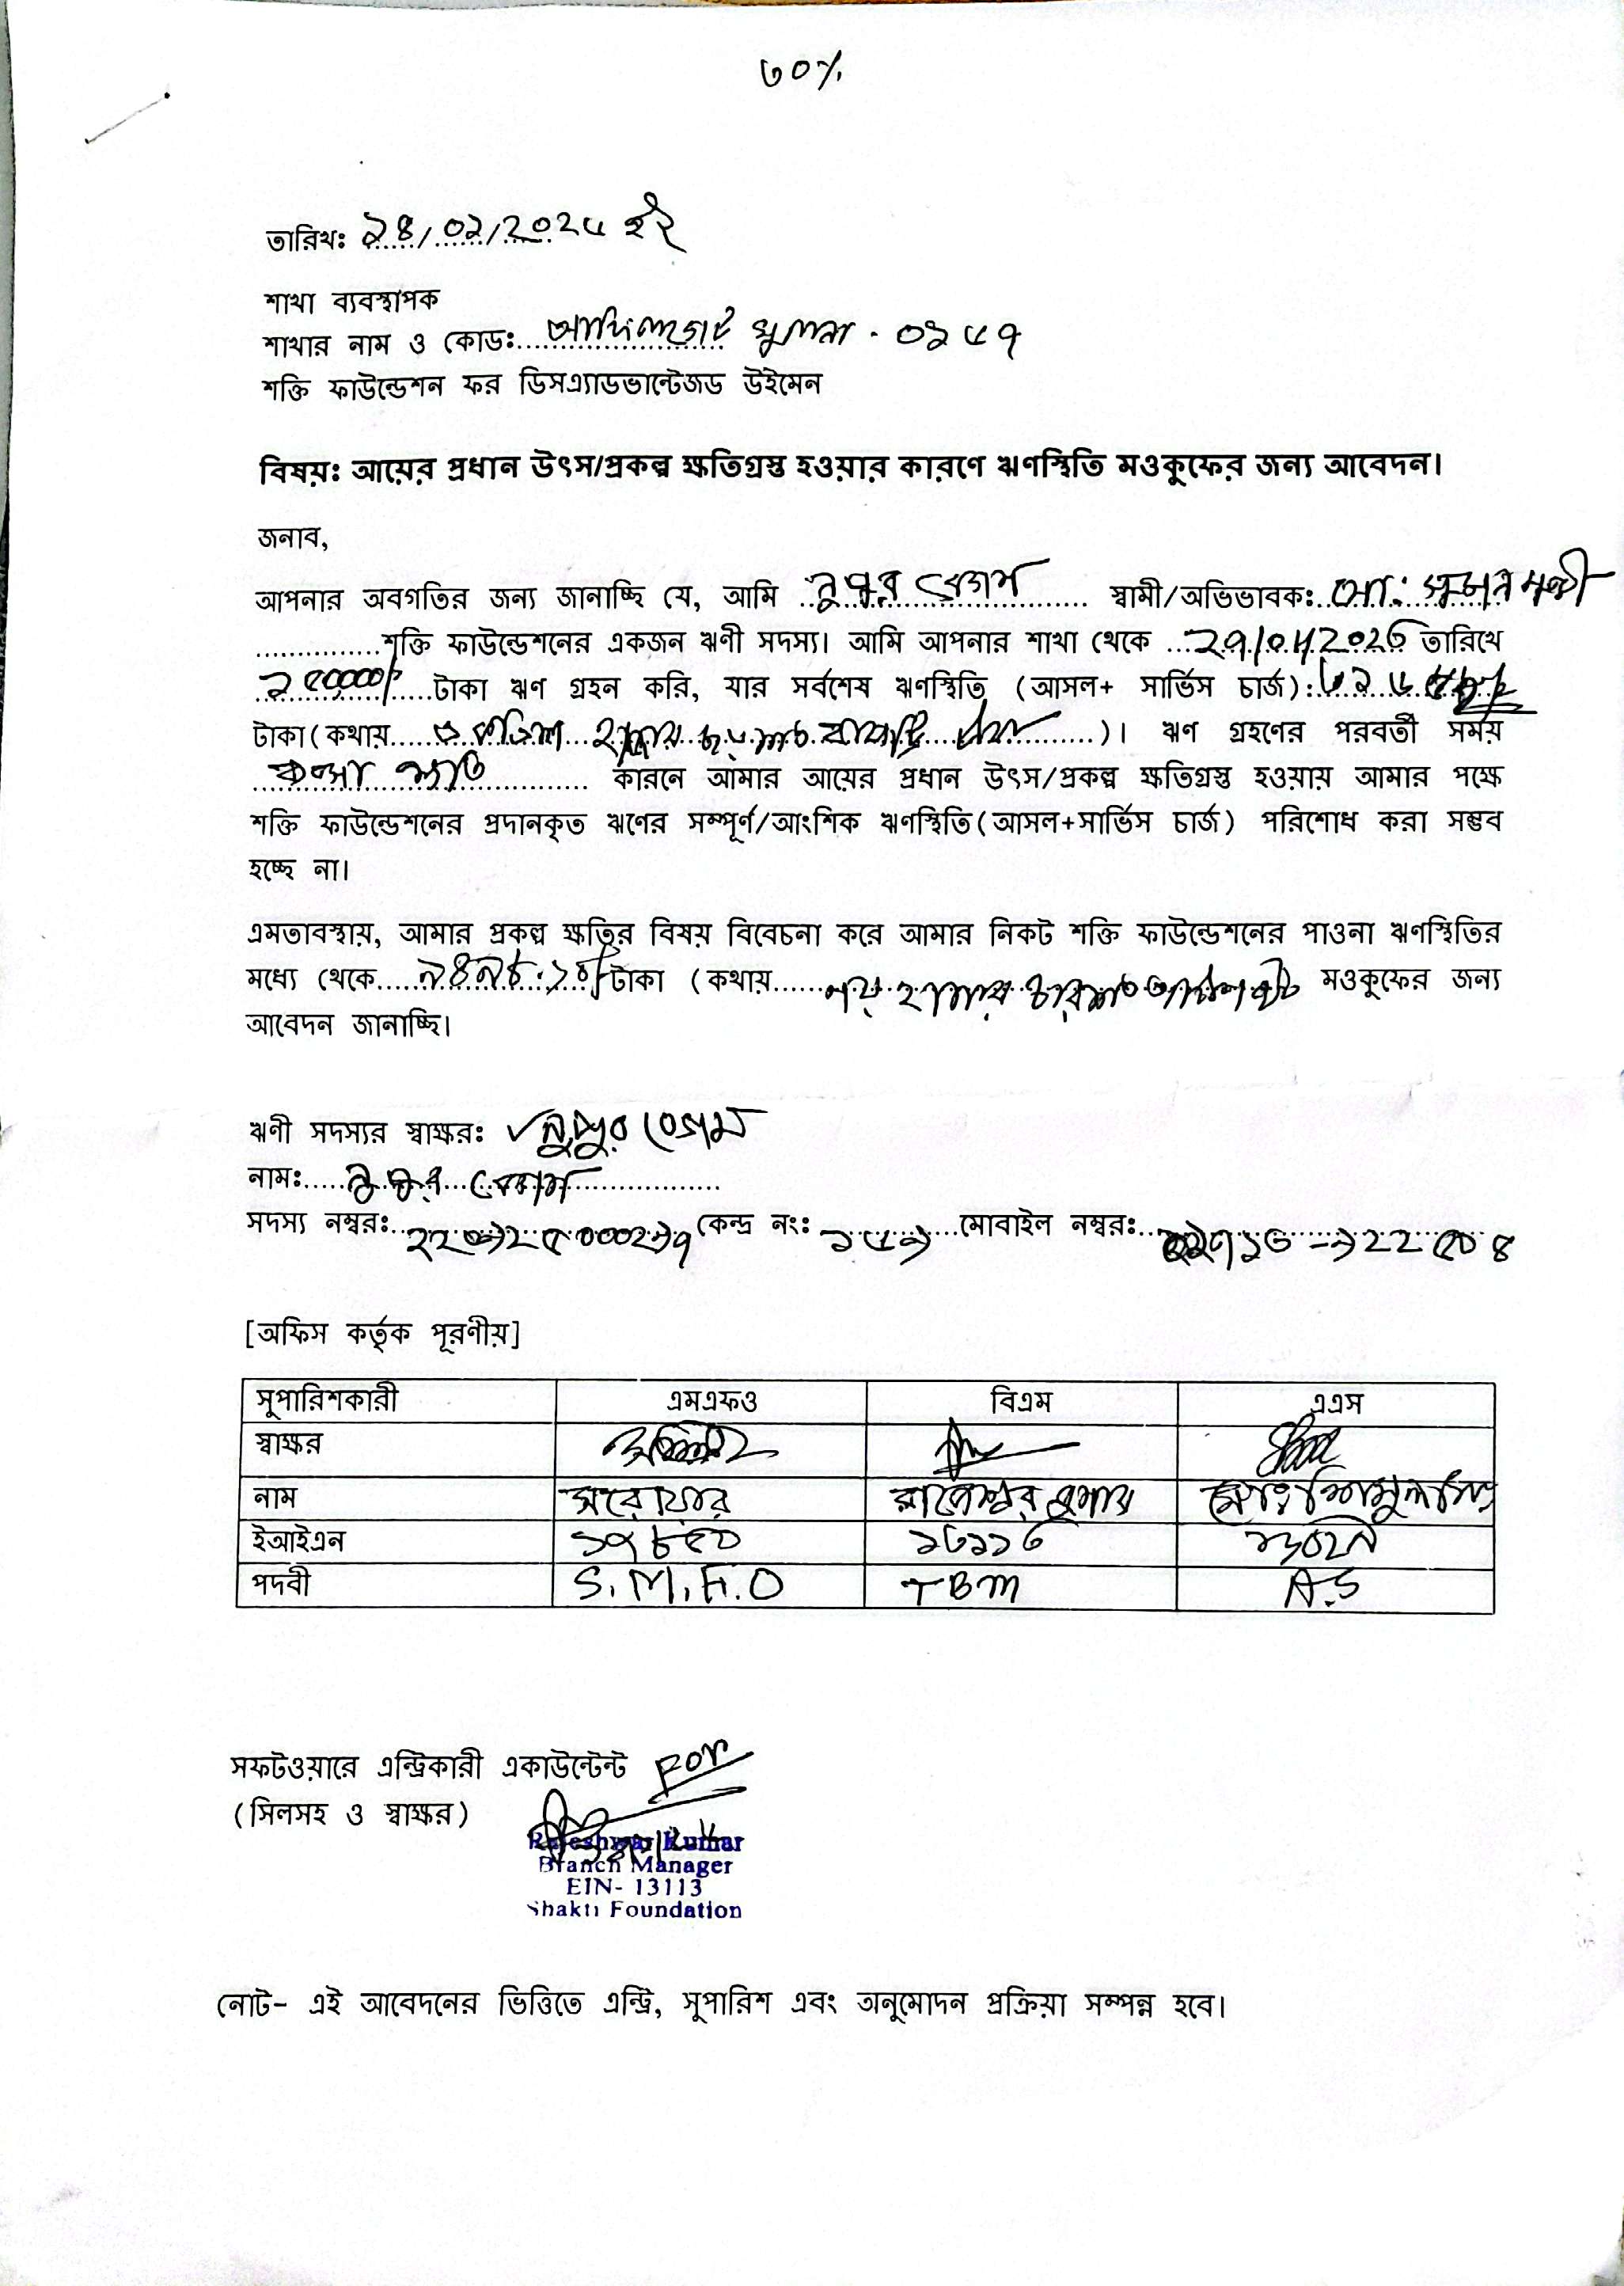 ৩০%
তারিখঃ ১৪/০২/২০২৫ ইং
শাখা ব্যবস্থাপক
শাখার নাম ও কোডঃ খুলনা - ০১৫৭
শক্তি ফাউন্ডেশন ফর ডিসএ্যাডভান্টেজড উইমেন
বিষয়ঃ আয়ের প্রধান উৎস/প্রকল্প ক্ষতিগ্রস্ত হওয়ার কারণে ঋণস্থিতি মওকুফের জন্য আবেদন।
জনাব,
আপনার অবগতির জন্য জানাচ্ছি যে, আমি নুপুর বেগম স্বামী/অভিভাবকঃ মো: সুমন
শক্তি ফাউন্ডেশনের একজন ঋণী সদস্য। আমি আপনার শাখা থেকে তারিখে
টাকা ঋণ গ্রহন করি, যার সর্বশেষ ঋণস্থিতি (আসল+ সার্ভিস চার্জ):
টাকা(কথায় হাজার )। ঋণ গ্রহণের পরবর্তী সময়
কারনে আমার আয়ের প্রধান উৎস/প্রকল্প ক্ষতিগ্রস্ত হওয়ায় আমার পক্ষে
শক্তি ফাউন্ডেশনের প্রদানকৃত ঋণের সম্পূর্ণ/আংশিক ঋণস্থিতি(আসল+সার্ভিস চার্জ) পরিশোধ করা সম্ভব
হচ্ছে না।
এমতাবস্থায়, আমার প্রকল্প ক্ষতির বিষয় বিবেচনা করে আমার নিকট শক্তি ফাউন্ডেশনের পাওনা ঋণস্থিতির
মধ্যে থেকে টাকা (কথায় নয় হাজার চারশত মওকুফের জন্য
আবেদন জানাচ্ছি।
ঋণী সদস্যর স্বাক্ষরঃ নুপুর বেগম
নামঃ নুপুর বেগম
সদস্য নম্বরঃ কেন্দ্র নং: মোবাইল নম্বরঃ
[অফিস কর্তৃক পূরণীয়]
সুপারিশকারী এমএফও বিএম এএস
স্বাক্ষর
নাম সরোয়ার রাজেশ্বর কুমার
ইআইএন ১৩১১৩
পদবী S.M.F.O TBM A.S
সফটওয়ারে এন্ট্রিকারী একাউন্টেন্ট For
(সিলসহ ও স্বাক্ষর)
Rajeshwar Kumar
Branch Manager
EIN- 13113
Shakti Foundation
নোট- এই আবেদনের ভিত্তিতে এন্ট্রি, সুপারিশ এবং অনুমোদন প্রক্রিয়া সম্পন্ন হবে।